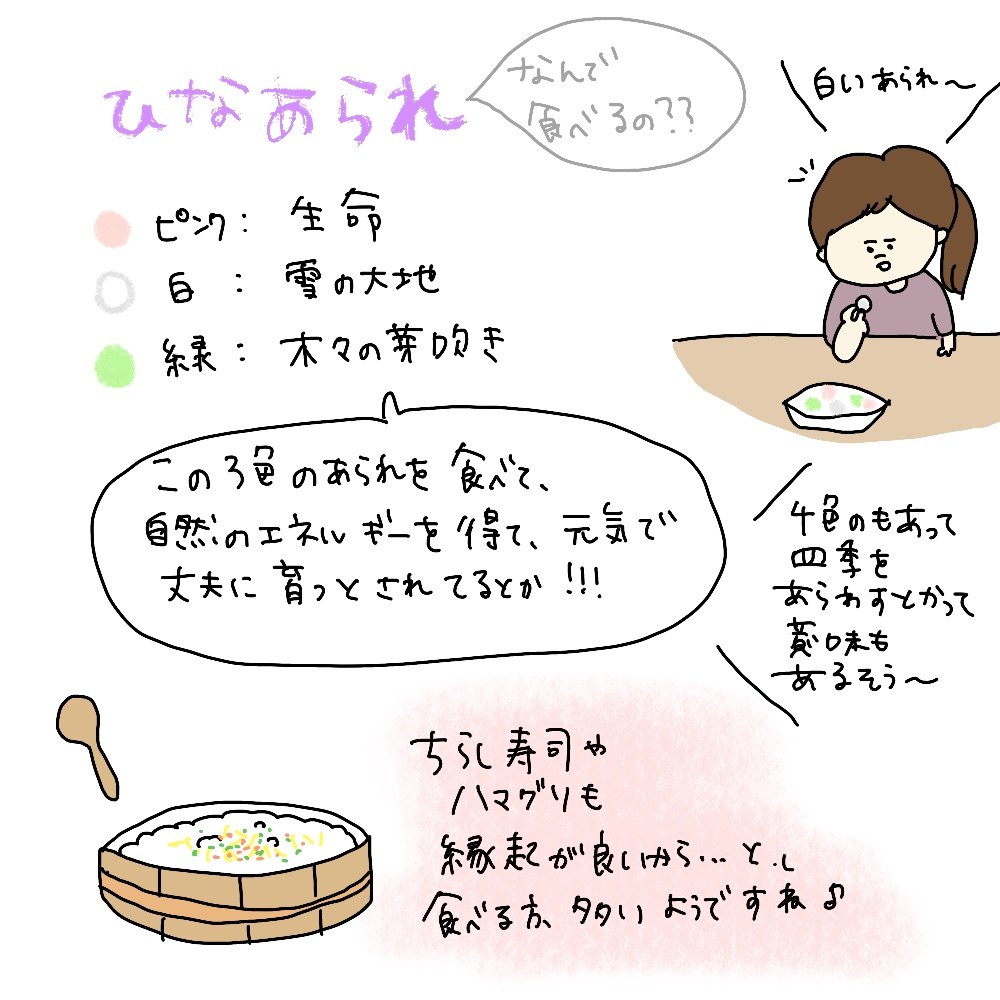 ひなあられ
なんで
食べるの??
白いあられ〜
ピンク: 生命
白: 雪の大地
緑: 木々の芽吹き
この3色のあられを食べて、
自然のエネルギーを得て、元気で
丈夫に育つとされてるとか!!!
4色のもあって
四季を
あらわすとかって
意味も
あるそう〜
ちらし寿司や
ハマグリも
縁起が良いから…と、
食べる方、多いようですね♪